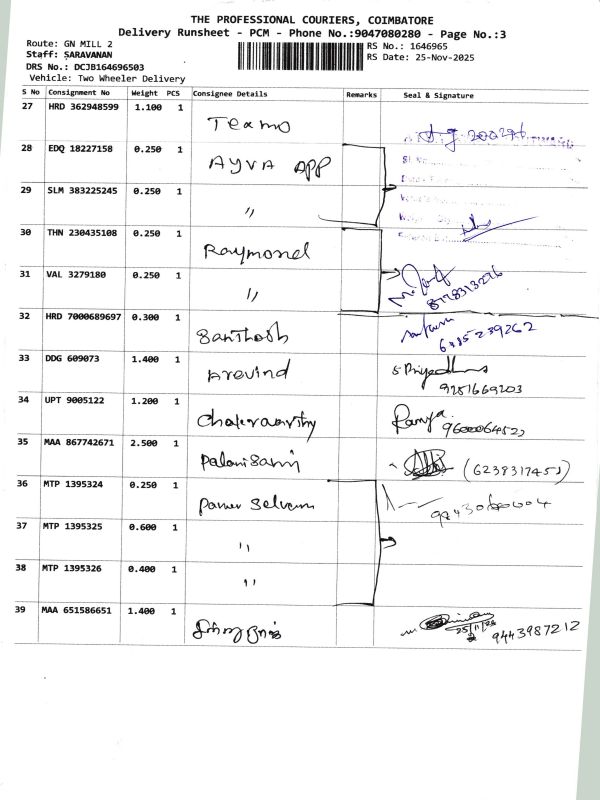 THE PROFESSIONAL COURIERS, COIMBATORE
Delivery Runsheet - PCM - Phone No.:9047080280 - Page No.:3
Route: GN MILL 2
Staff: SARAVANAN
DRS No.: DCJB164696503
Vehicle: Two Wheeler Delivery
RS No.: 1646965
RS Date: 25-Nov-2025
S No Consignment No Weight PCS Consignee Details Remarks Seal & Signature
27 HRD 362948599 1.100 1 Teamo
28 EDQ 18227158 0.250 1 AYVA APP
29 SLM 383225245 0.250 1 〃
30 THN 230435108 0.250 1 Raymond
31 VAL 3279180 0.250 1 〃
8778313276
32 HRD 7000689697 0.300 1 Santhosh
33 DDG 609073 1.400 1 Aravind
S Priya
9751669203
34 UPT 9005122 1.200 1 Chakravarthy Ramya
35 MAA 867742671 2.500 1 Palanisami
36 MTP 1395324 0.250 1 Panner Selvam
37 MTP 1395325 0.600 1 〃
38 MTP 1395326 0.400 1 〃
39 MAA 651586651 1.400 1
25/11/25
9443987212